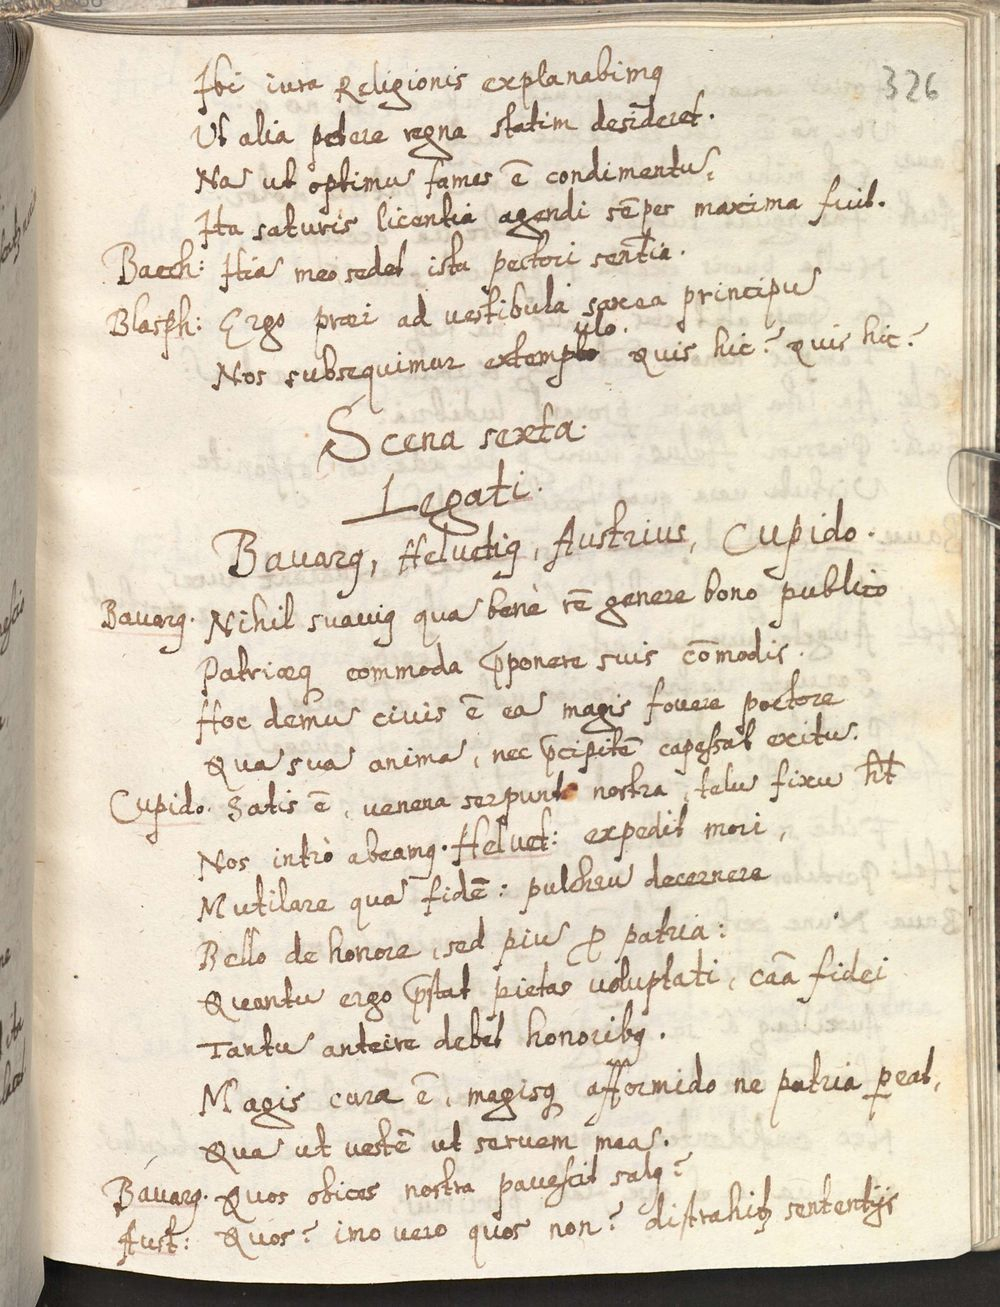 326
Ibi iura Religionis explanabimꝗ
Ut alia petere regna statim desideret.
Nã ut optimũ fames ẽ condimentũ,
Ita saturis licentia agendi sẽper maxima fuit.
Bacch: Itia meo sedet ista pectori sentĩa.
Blasph: Ergo præi ad vestibula saxea principũ
Nos subsequimur extemplo ulo. Quis hic? Quis hic?
Scena sexta.
Legati.
Bavarꝗ, Helvetiꝗ, Austrius, Cupido.
Bavarꝗ. Nihil suaviꝗ quã benè rẽ genere bono publico
Patriæꝗ commoda p̄ponere suis cõmodis.
Hoc demũ civis ẽ eã magis fovere pectore
Quã suã animã, nec p̄cipitẽ capessat exitũ.
Cupido. Satis ẽ, venena serpunt nostra, telũ fixũ h̃t
Nos intrò abeamꝗ. Helvet: expedit mori,
Mutilare quã fidẽ: pulchrũ decernere
Bello de honore, sed piũ ꝓ patria:
Quantũ ergo p̄stat pietas voluptati, cãa fidei
Tantũ anteire debet honoribꝗ.
Magis curæ ẽ, magisꝗ afformido ne patria ꝑeat,
Quã ut vestẽ ut servem meã.
Bavarꝗ. Quos obices nostra pavescit salꝗ?
Aust: Quos? imo vero quos non? distrahitꝫ sententijs